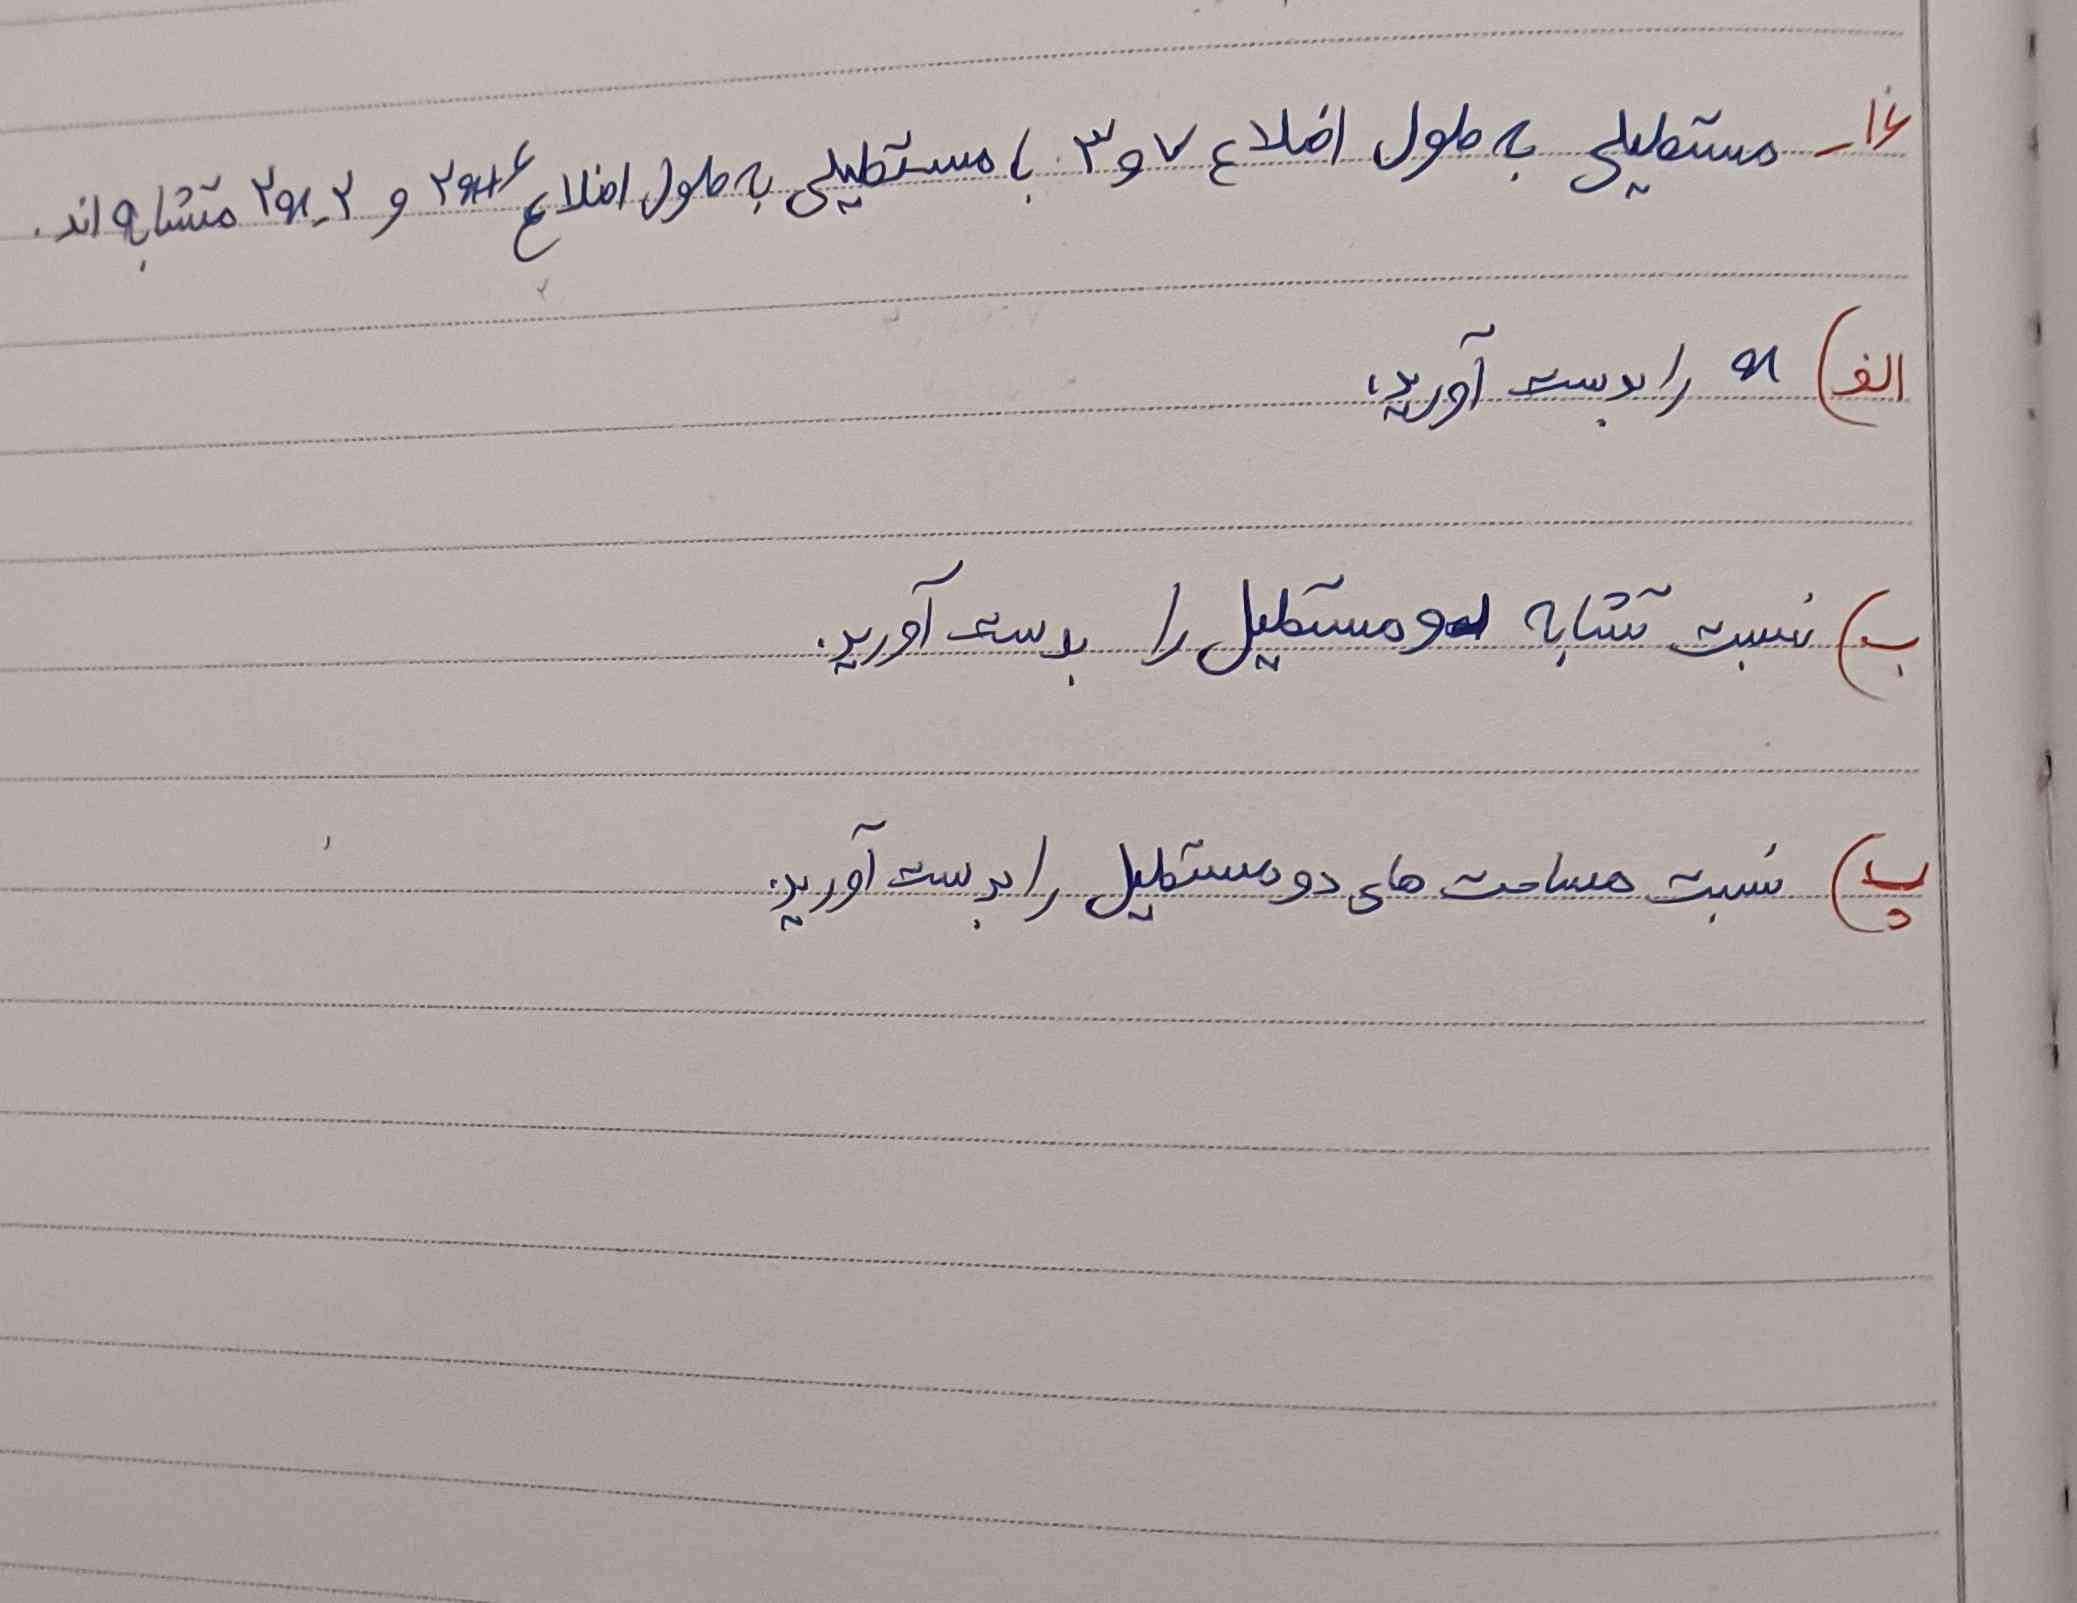 ۱۶- مستطیلی به طول اضلاع ۷ و ۳ با مستطیلی به طول اضلاع ۲x+۶ و ۲x-۲ متشابه اند.
الف) x را بدست آورید.
ب) نسبت تشابه دو مستطیل را بدست آورید.
پ) نسبت مساحت های دو مستطیل را بدست آورید.